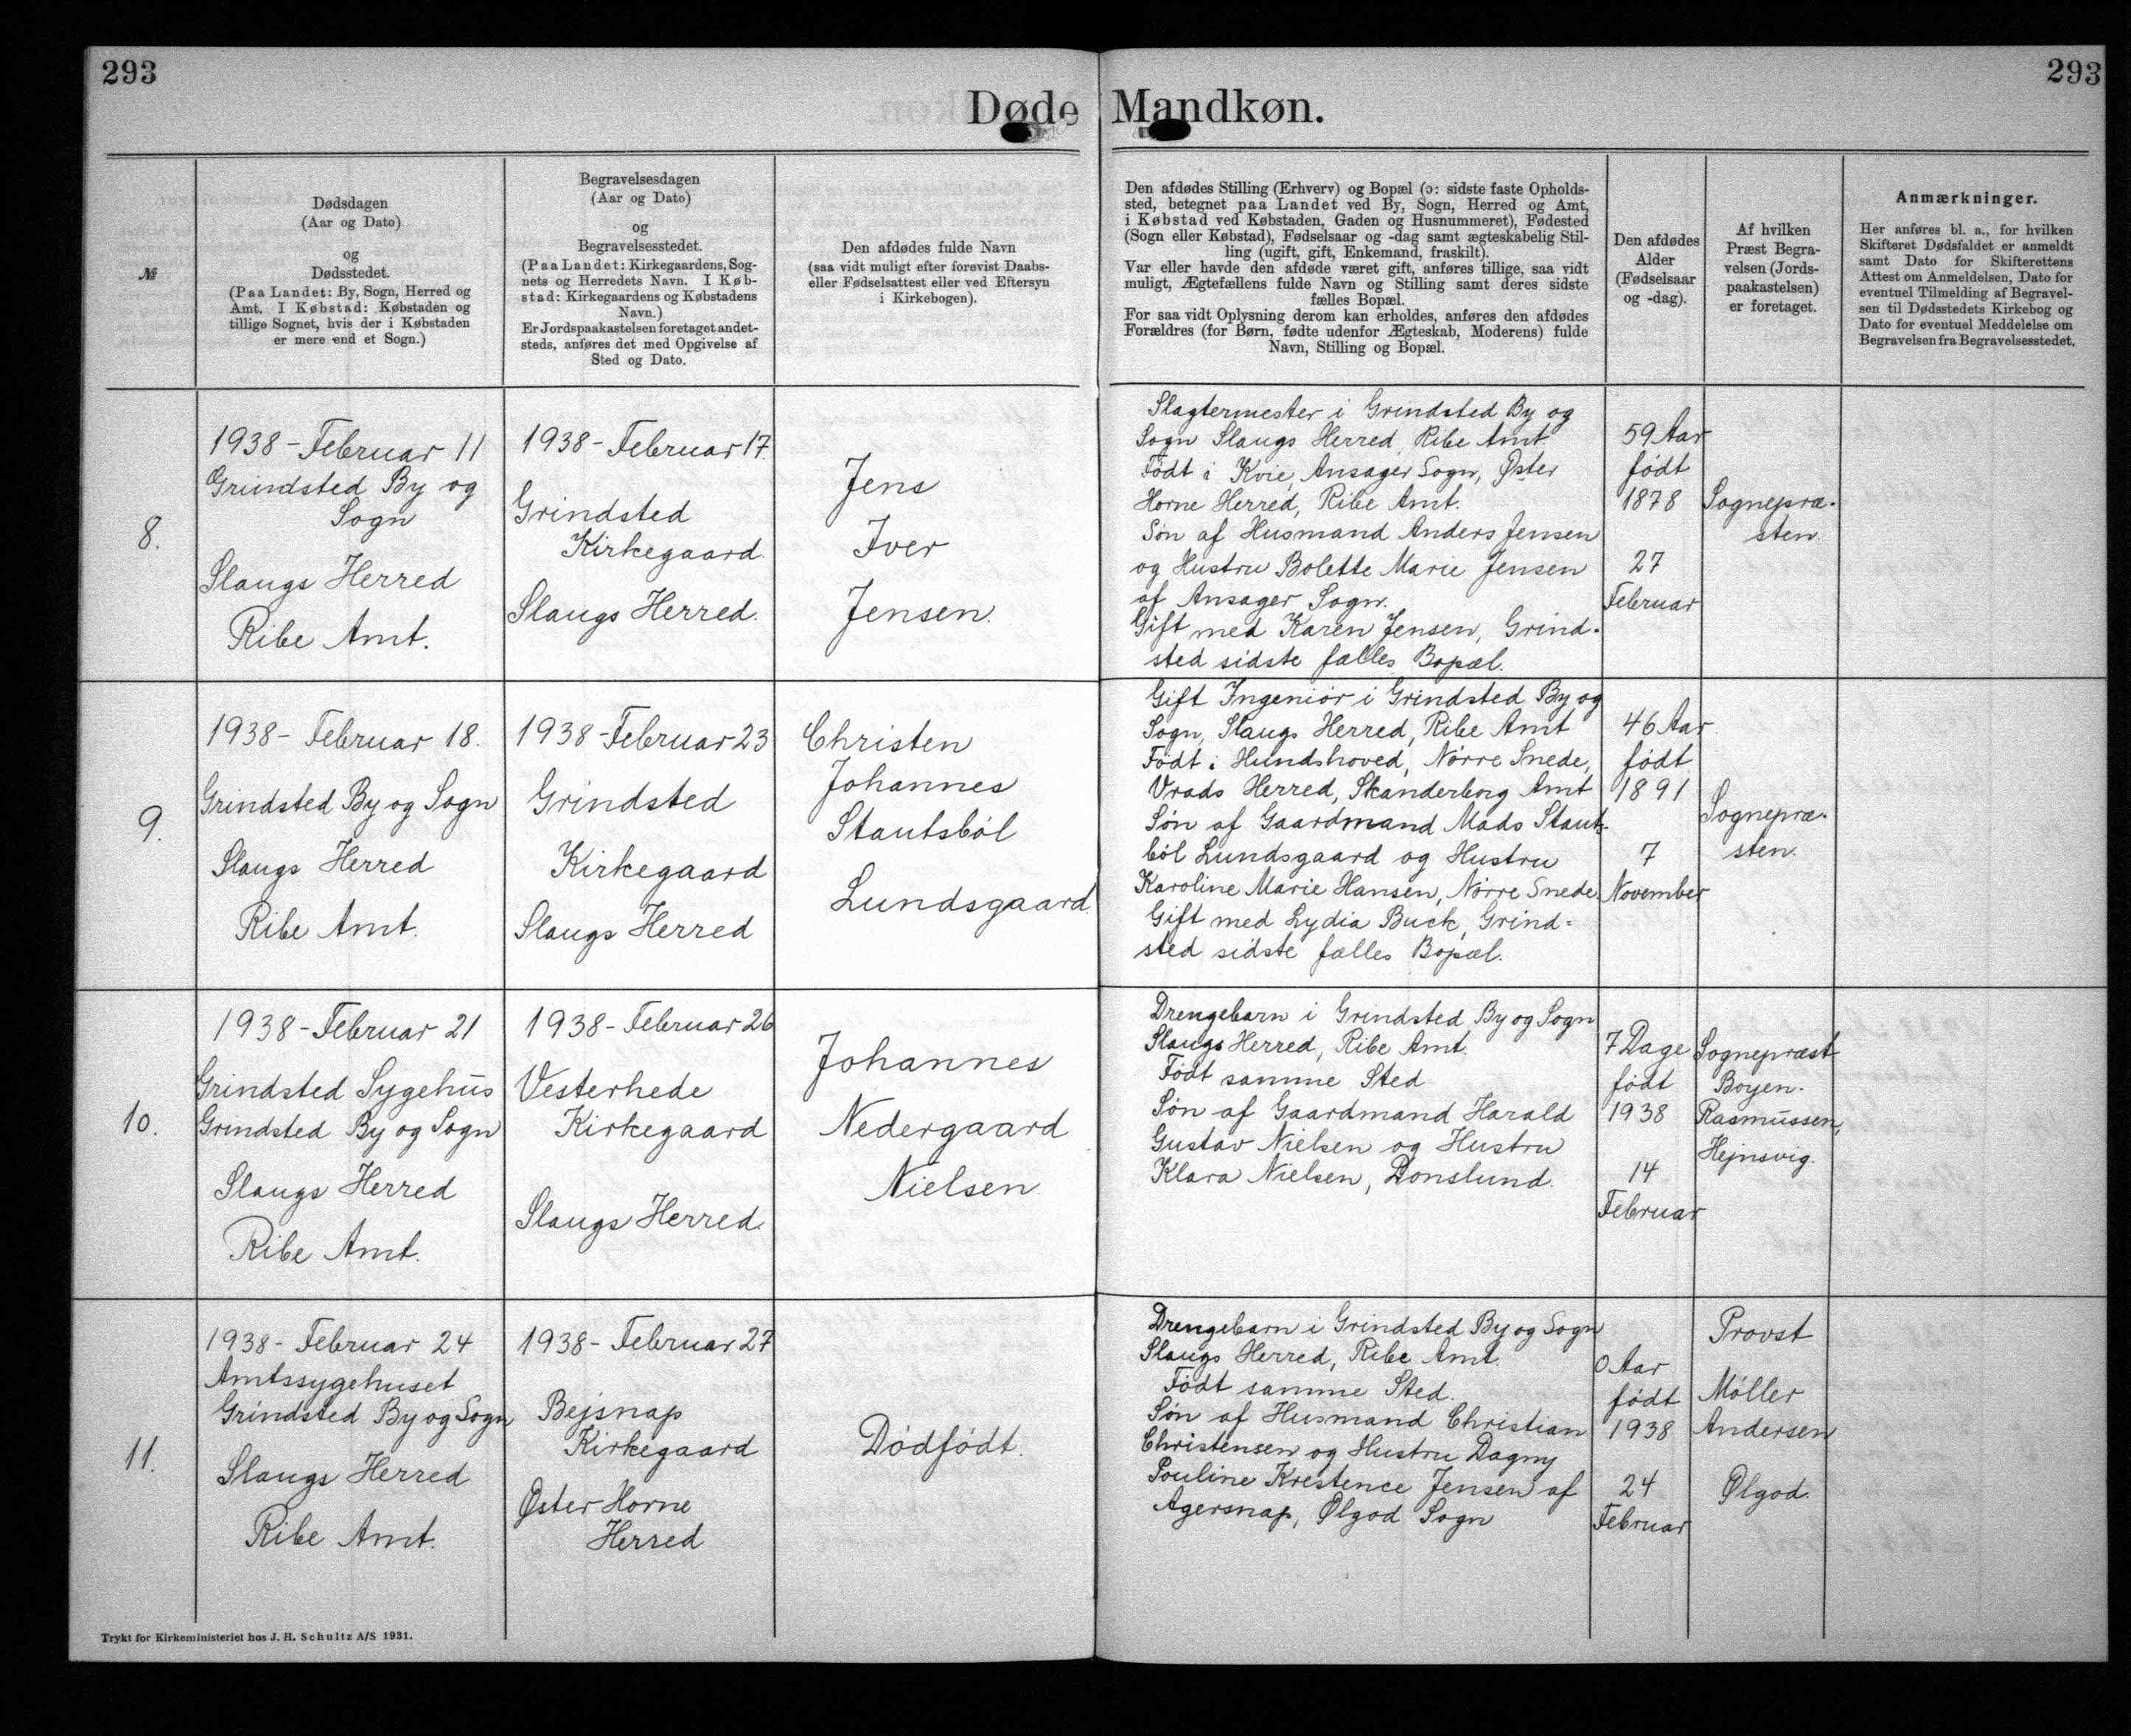 293
293
Døde Mandkøn.
№
Dødsdagen
(Aar og Dato)
og
Dødsstedet.
(Paa Landet: By, Sogn, Herred og
Amt. I Købstad: Købstaden og
tillige Sognet, hvis der i Købstaden
er mere end et Sogn.)
Begravelsesdagen
(Aar og Dato)
og
Begravelsesstedet.
(Paa Landet: Kirkegaardens, Sog-
nets og Herredets Navn. I Køb-
stad: Kirkegaardens og Købstadens
Navn.)
Er Jordspaakastelsen foretaget andet-
steds, anføres det med Opgivelse af
Sted og Dato.
Den afdødes fulde Navn
(saa vidt muligt efter forevist Daabs-
eller Fødselsattest eller ved Eftersyn
i Kirkebogen).
Den afdødes Stilling (Erhverv) og Bopæl (ɔ: sidste faste Opholds-
sted, betegnet paa Landet ved By, Sogn, Herred og Amt,
i Købstad ved Købstaden, Gaden og Husnummeret), Fødested
(Sogn eller Købstad), Fødselsaar og -dag samt ægteskabelig Stil-
ling (ugift, gift, Enkemand, fraskilt).
Var eller havde den afdøde været gift, anføres tillige, saa vidt
muligt, Ægtefællens fulde Navn og Stilling samt deres sidste
fælles Bopæl.
For saa vidt Oplysning derom kan erholdes, anføres den afdødes
Forældres (for Børn, fødte udenfor Ægteskab, Moderens) fulde
Navn, Stilling og Bopæl.
Den afdødes
Alder
(Fødselsaar
og -dag).
Af hvilken
Præst Begra-
velsen (Jords-
paakastelsen)
er foretaget.
Anmærkninger.
Her anføres bl. a., for hvilken
Skifteret Dødsfaldet er anmeldt
samt Dato for Skifterettens
Attest om Anmeldelsen, Dato for
eventuel Tilmelding af Begravel-
sen til Dødsstedets Kirkebog og
Dato for eventuel Meddelelse om
Begravelsen fra Begravelsesstedet.
8.
1938 - Februar 11
Grindsted By og
Sogn
Slaugs Herred
Ribe Amt.
1938 - Februar 17.
Grindsted
Kirkegaard.
Slaugs Herred.
Jens
Iver
Jensen.
Slagtermester i Grindsted By og
Sogn Slaugs Herred, Ribe Amt
Født i Kvie, Ansager Sogn, Øster
Horne Herred, Ribe Amt.
Søn af Husmand Anders Jensen
og Hustru Bolette Marie Jensen
af Ansager Sogn.
Gift med Karen Jensen, Grind-
sted sidste fælles Bopæl.
59 Aar
født
1878
27
Februar
Sognepræ-
sten.
9.
1938 - Februar 18.
Grindsted By og Sogn
Slaugs Herred
Ribe Amt.
1938 - Februar 23
Grindsted
Kirkegaard
Slaugs Herred
Christen
Johannes
Stautsbøl
Lundsgaard.
Gift Ingeniør i Grindsted By og
Sogn, Slaugs Herred, Ribe Amt
Født i Hundshoved, Nørre Snede,
Vrads Herred, Skanderborg Amt
Søn af Gaardmand Mads Stauts-
bøl Lundsgaard og Hustru
Karoline Marie Hansen, Nørre Snede.
Gift med Lydia Buck, Grind-
sted sidste fælles Bopæl.
46 Aar
født
1891
7
November
Sognepræ-
sten.
10.
1938 - Februar 21
Grindsted Sygehus
Grindsted By og Sogn
Slaugs Herred
Ribe Amt.
1938 - Februar 26
Vesterhede
Kirkegaard
Slaugs Herred.
Johannes
Nedergaard
Nielsen
Drengebarn i Grindsted By og Sogn
Slaugs Herred, Ribe Amt.
Født samme Sted
Søn af Gaardmand Harald
Gustav Nielsen og Hustru
Klara Nielsen, Donslund.
7 Dage
født
1938
14
Februar
Sognepræst
Boyen-
Rasmussen,
Hejnsvig.
11.
1938 - Februar 24
Amtssygehuset
Grindsted By og Sogn
Slaugs Herred
Ribe Amt.
1938 - Februar 27
Bejsnap
Kirkegaard
Øster Horne
Herred
Dødfødt.
Drengebarn i Grindsted By og Sogn
Slaugs Herred, Ribe Amt.
Født samme Sted.
Søn af Husmand Christian
Christensen og Hustru Dagny
Pouline Krestence Jensen af
Agersnap, Ølgod Sogn
0 Aar
født
1938
24
Februar
Provst
Møller
Andersen
Ølgod.
Trykt for Kirkeministeriet hos J. H. Schultz A/S 1931.